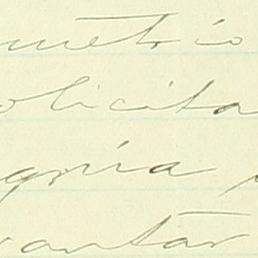 metrio
olicita
gnia
vantar